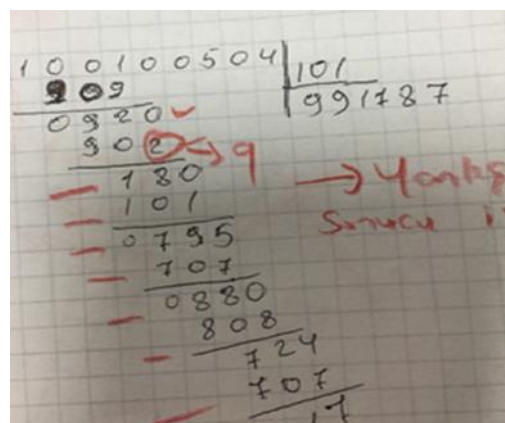 100100504 101
909 991787
0920
902 → 9
180
101
0795 Sonucu
707
0880
808
724
707
17